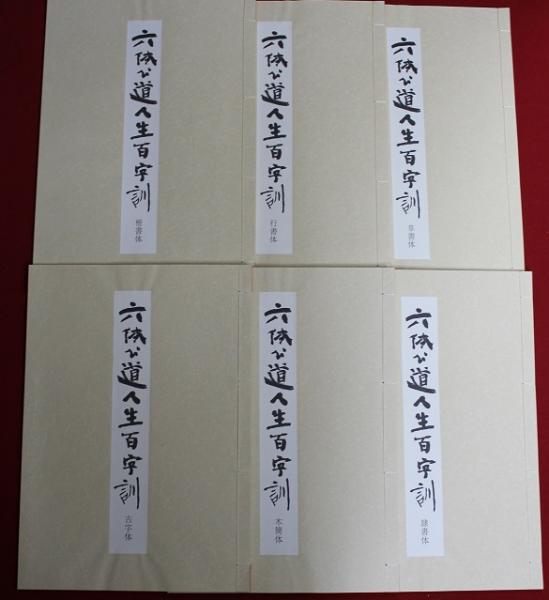 六体公道人生百字訓
楷書体
六体公道人生百字訓
行書体
六体公道人生百字訓
草書体
六体公道人生百字訓
古字体
六体公道人生百字訓
木簡体
六体公道人生百字訓
隷書体